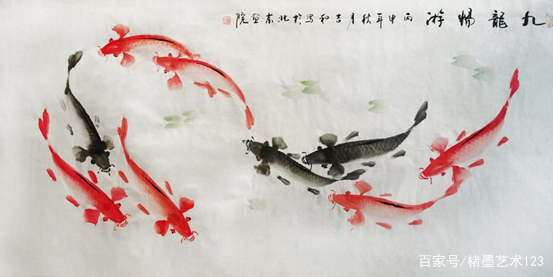 九龍暢游 丙申年秋月吉和写於北京畫院
百家号/楮墨艺术123